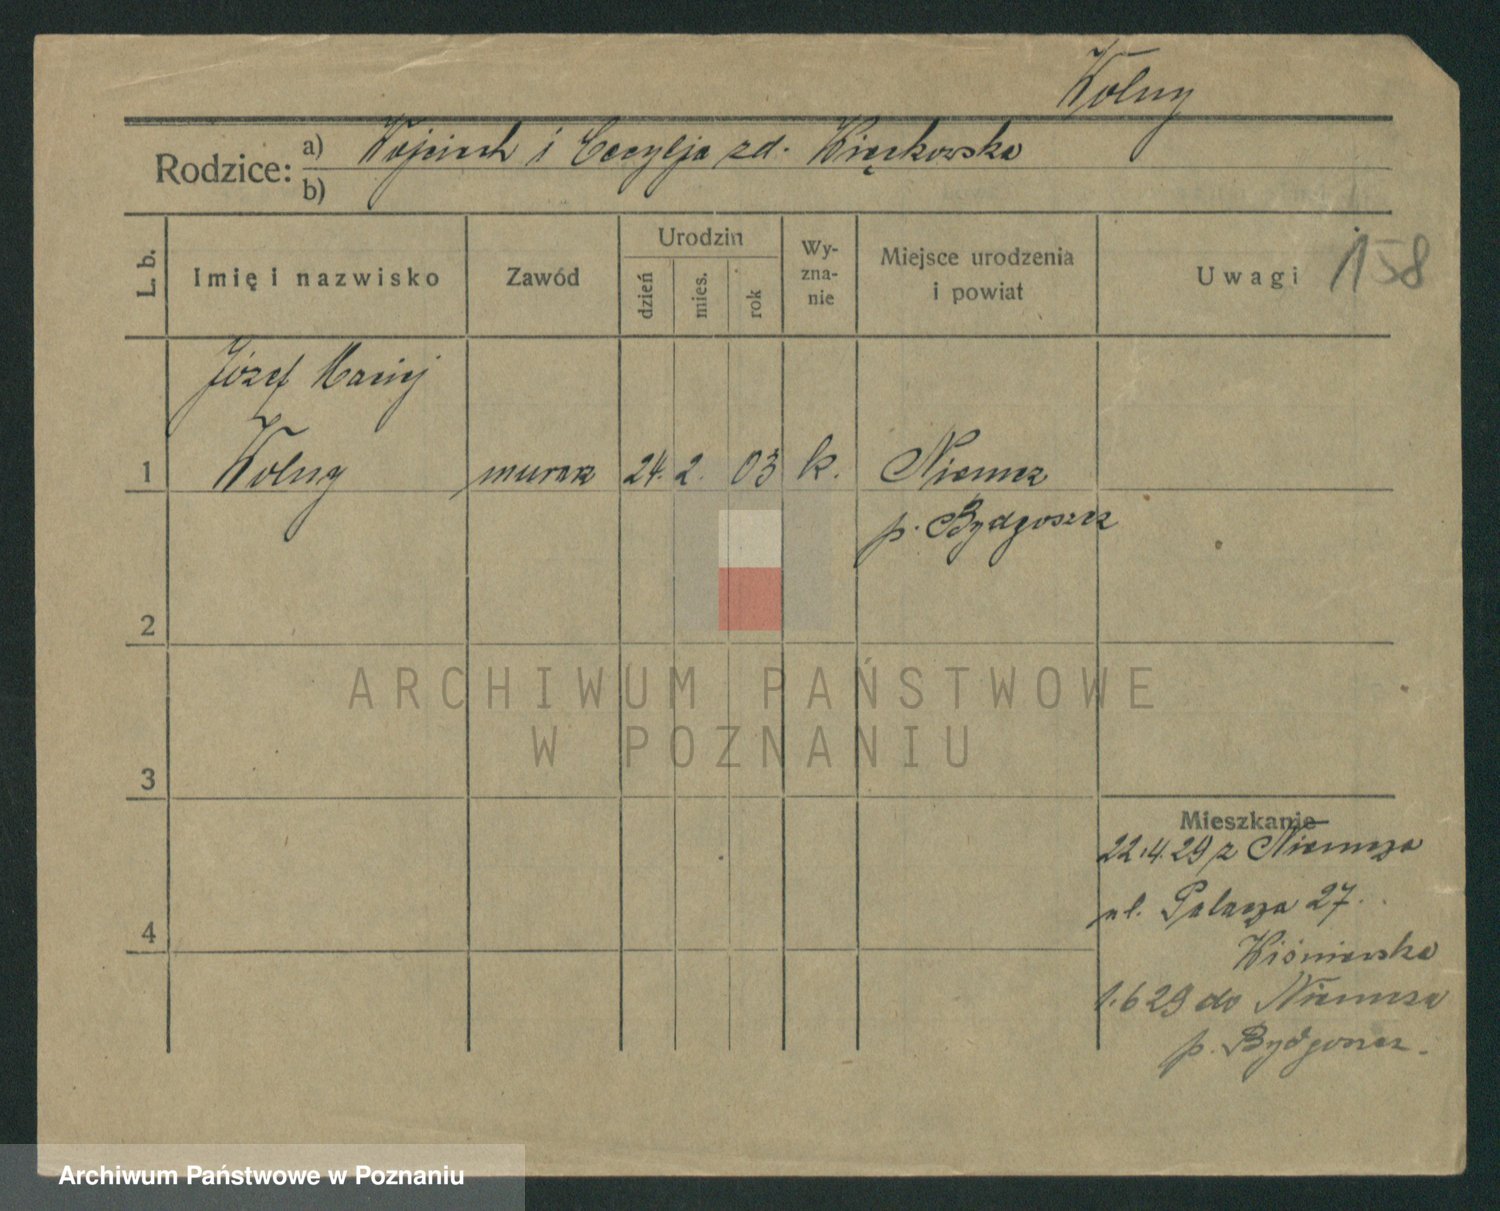 Wolny
Rodzice: a) Wojciech i Cecylja zd. Więckowska
b)
L. b. Imię i nazwisko Zawód Urodzin dzień mies. rok Wy- zna- nie Miejsce urodzenia i powiat Uwagi 158
Józef Maciej
1 Wolny murarz 24. 2. 03 k. Niemcz
p. Bydgoszcz
2
ARCHIWUM PAŃSTWOWE
W POZNANIU
3
Mieszkanie
22.4.29 z Niemcza
ul. Palacza 27.
4
Wiśniewska
1.6 29 do Niemcza
p. Bydgoszcz.
Archiwum Państwowe w Poznaniu